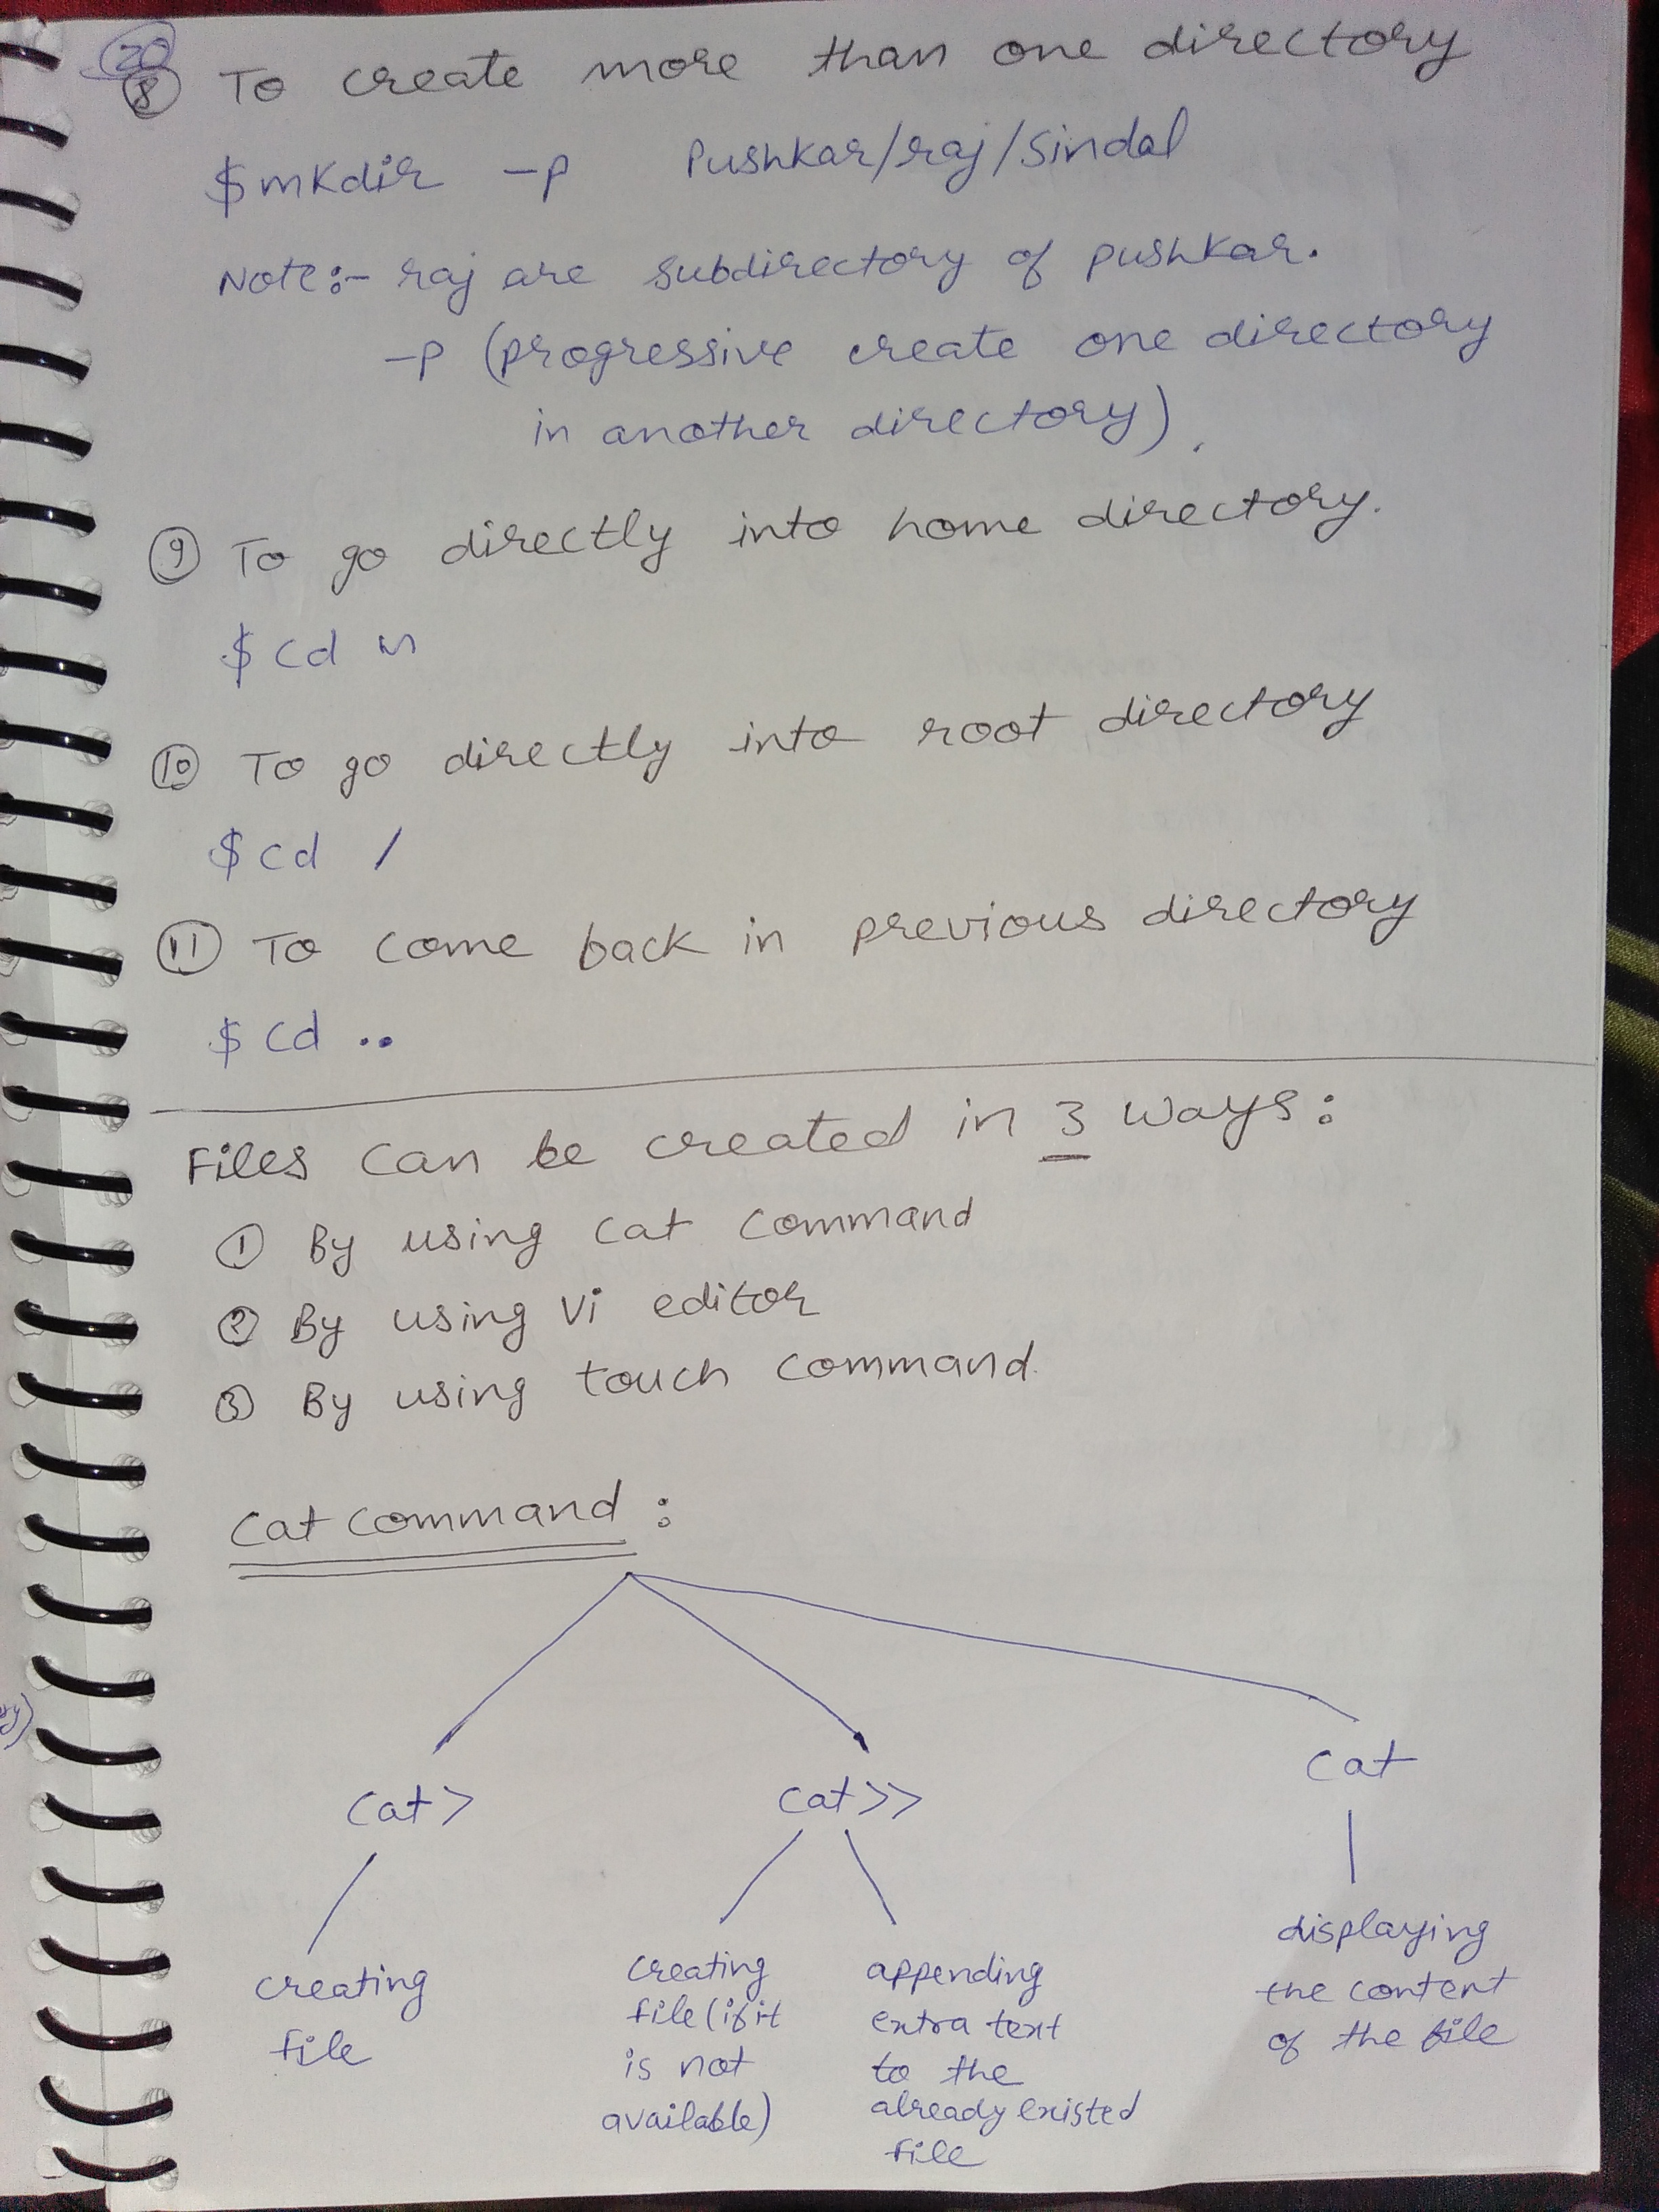 20
⑧ To create more than one directory
$ mkdir -p Pushkar/raj/sindal
Note:- raj are subdirectory of pushkar.
-p (progressive create one directory
in another directory).
⑨ To go directly into home directory.
$ cd ~
⑩ To go directly into root directory
$ cd /
⑪ To come back in previous directory
$ cd ..
Files can be created in 3 ways:
① By using cat command
② By using vi editor
③ By using touch command.
Cat command :
cat> cat>> cat
creating
file
creating
file (if it
is not
available)
appending
extra text
to the
already existed
file
displaying
the content
of the file